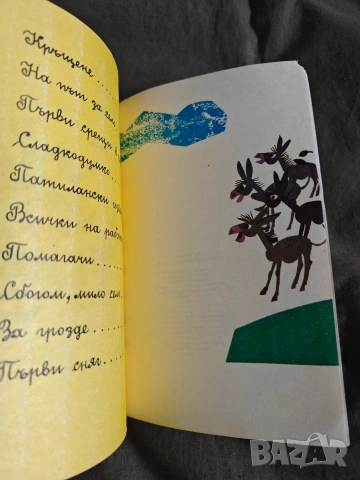 Кръщене....
На път за село
Първи срещи в
Сладкодумко..
Патилански
Всички на работа
Помагачи.....
Сбогом, мило село
За грозде.....
Първи сняг....
BAZAR